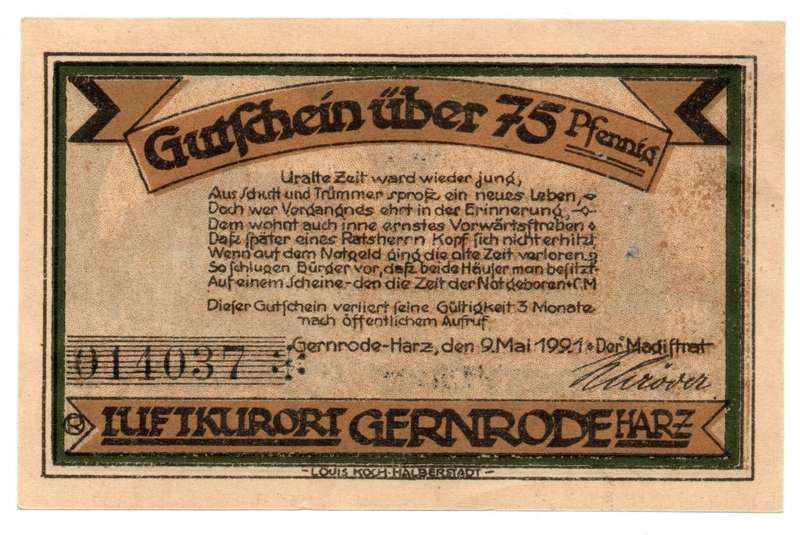 Gutschein über 75 Pfennig
Uralte Zeit ward wieder jung,
Aus Schutt und Trümmer sproß ein neues Leben,
Doch wer Vergangnes ehrt in der Erinnerung,
Dem wohnt auch inne ernstes Vorwärtsstreben
Daß später eines Ratsherrn Kopf sich nicht erhitzt,
Wenn auf dem Notgeld ging die alte Zeit verloren
So schlugen Bürger vor, daß beide Häuser man besitzt
Auf einem Scheine-den die Zeit der Not geboren
Dieser Gutschein verliert seine Gültigkeit 3 Monate
nach öffentlichem Aufruf.
Gernrode-Harz, den 9. Mai 1921 Der Magistrat
014037
R LUFTKURORT GERNRODE HARZ
-LOUIS KOCH-HALBERSTADT-